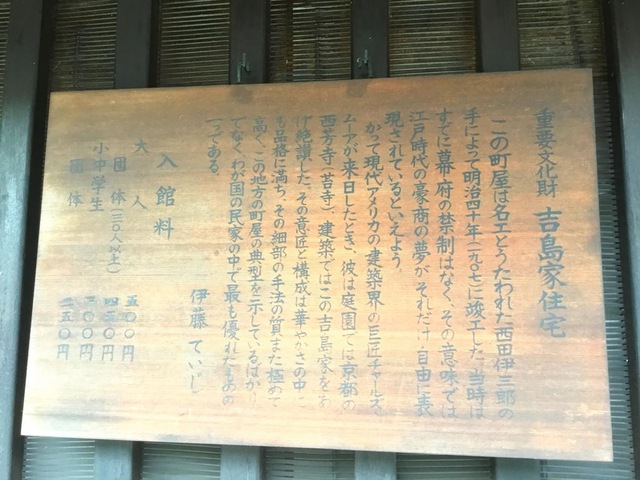 重要文化財 吉島家住宅
この町屋は名工とうたわれた西田伊三郎の
手によって明治四十年(一九〇七)に竣工した。当時は
すでに幕府の禁制はなく、その意味では
江戸時代の豪商の夢がそれだけ自由に表
現されているといえよう。
かつて現代アメリカの建築界の巨匠チャールズ、
ムーアが来日したとき、彼は庭園では京都の
西芳寺(苔寺)、建築ではこの吉島家をあ
げ絶讃した。その意匠と構成は華やかさの中に
も品格に満ち、その細部の手法の質また極めて
高く、この地方の町屋の典型を示しているばかり
でなく、わが国の民家の中で最も優れたものの
一つである。
伊藤ていじ
入館料
大人 五〇〇円
団体(三〇人以上) 四五〇円
小中学生 三〇〇円
団体 二五〇円